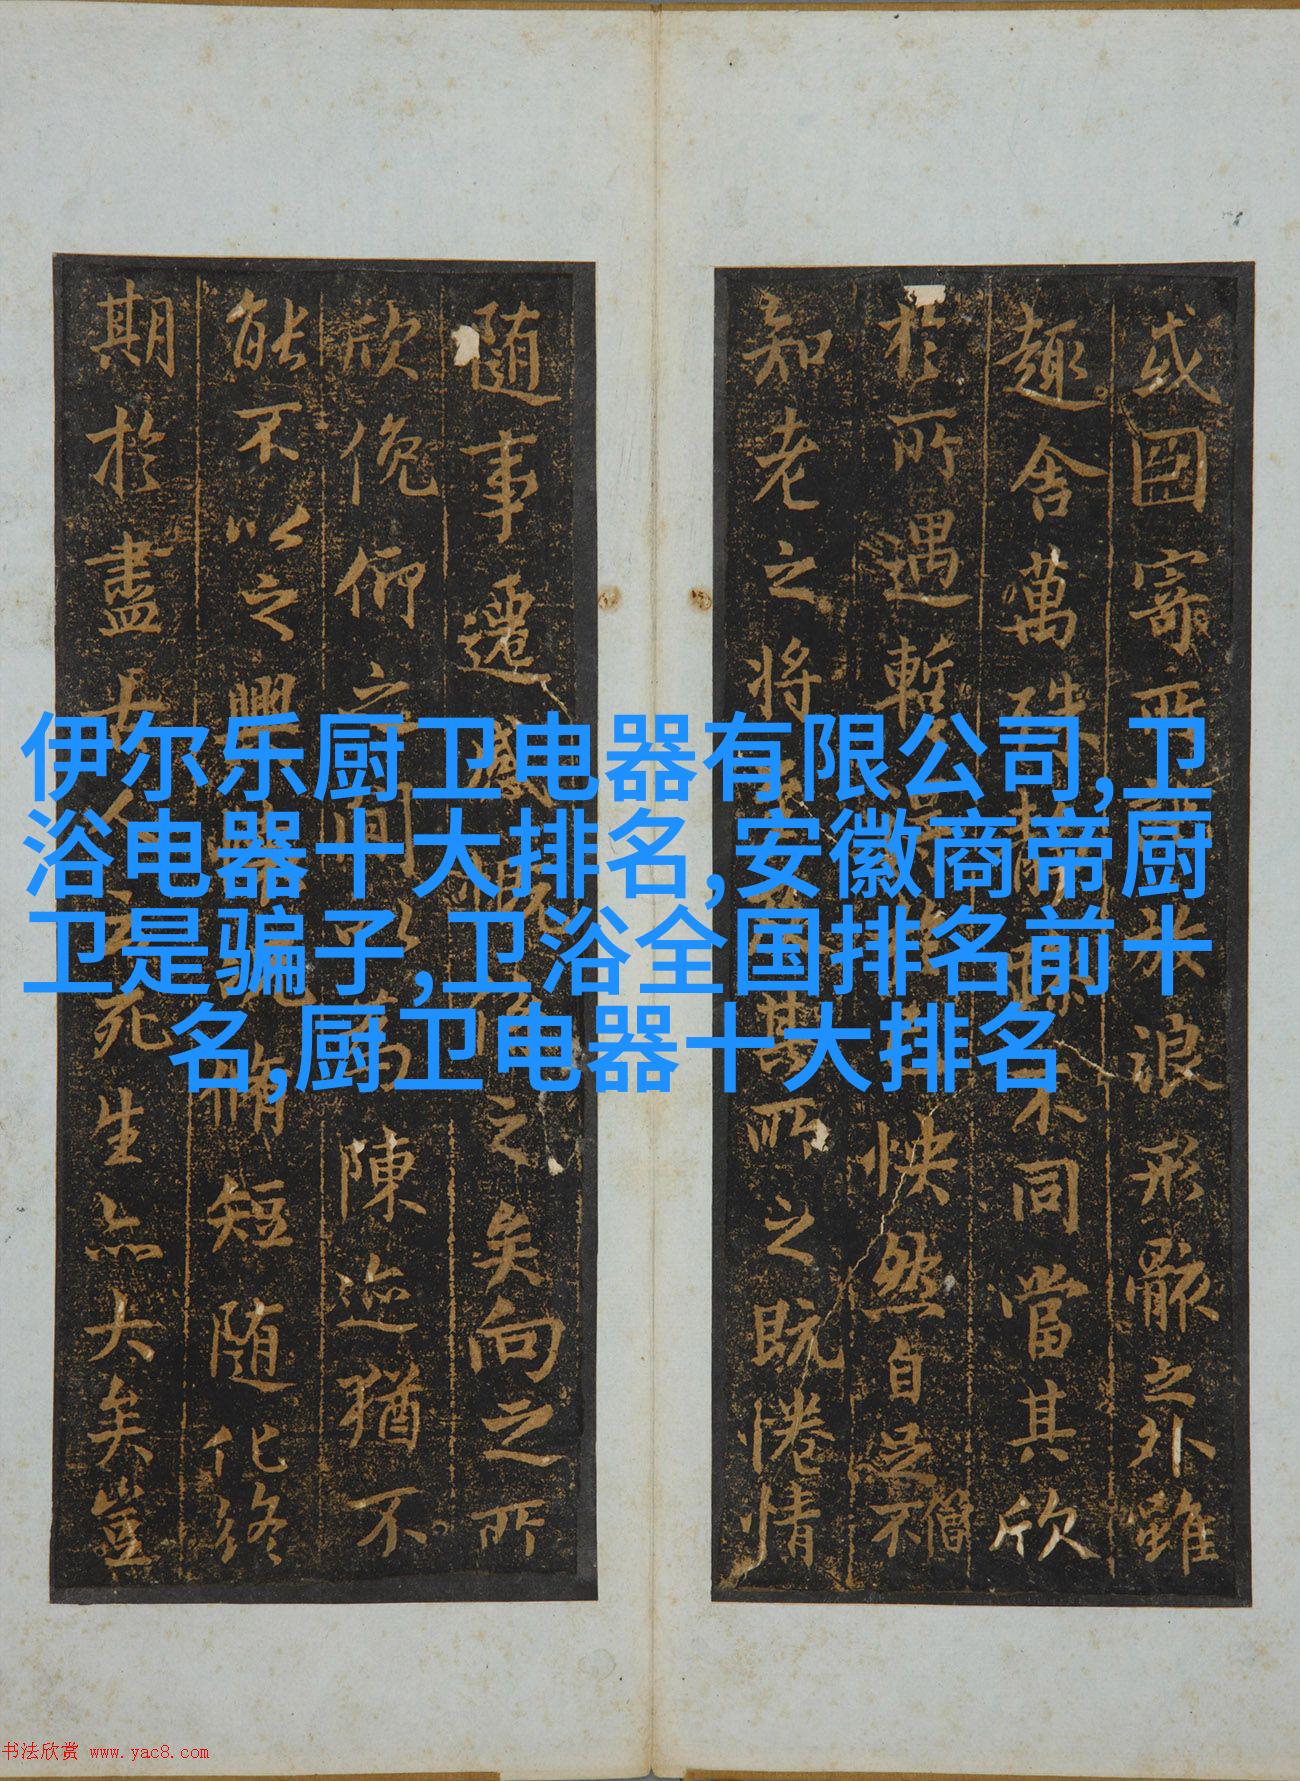 伊尔乐厨卫电器有限公司,卫
浴电器十大排名,安徽商帝厨
卫是骗子,卫浴全国排名前十
名,厨卫电器十大排名
或因寄所託放浪形骸之外雖
趣舍萬殊静躁不同當其欣
於所遇暫怏然自足不
僧
知老之將其所之既惓情
隨事遷感慨係之矣向之所
欣俛仰之間以為陳迹猶不
能不以之興脩短隨化終
期於盡古人云死生亦大矣豈
书法欣赏 www.yac8.com